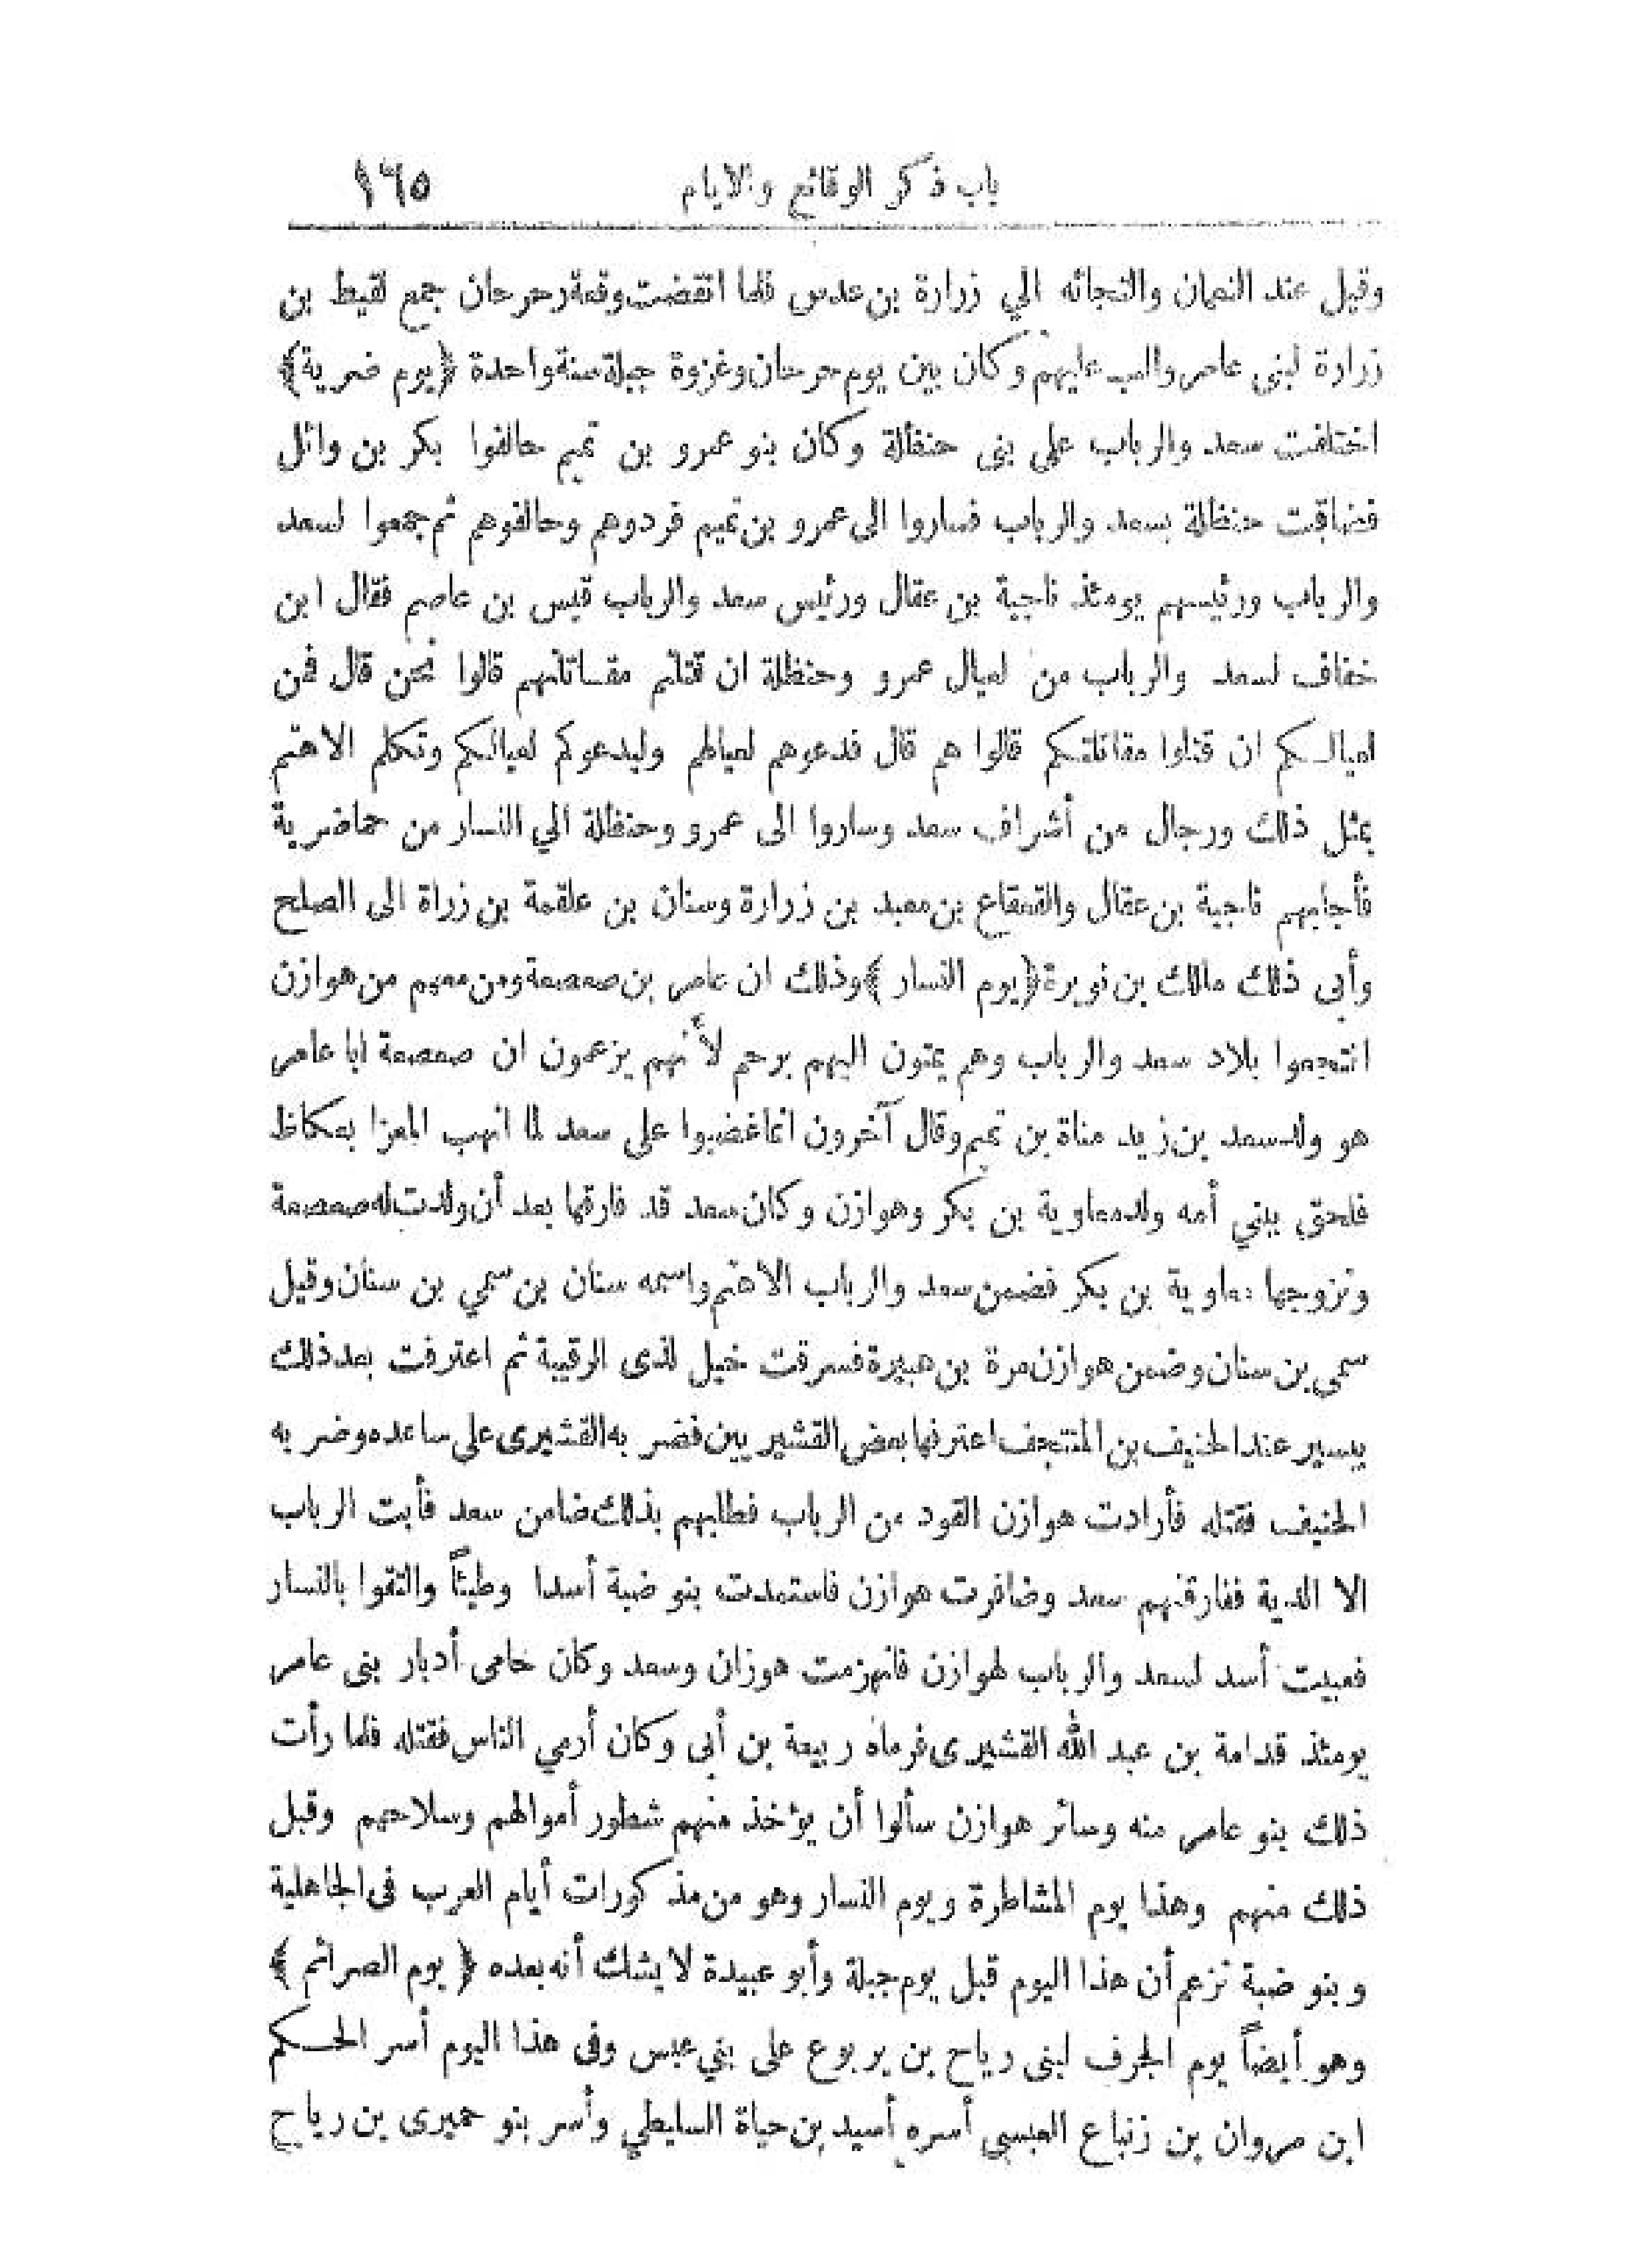 باب ذكر الوقائع والايام ١٦٥
وقيل عند النعمان والتجائه الي زرارة بن عدس فلما انقضت وقعة رحرحان جمع لقيط بن
زرارة لبنى عامر والب عليهم وكان بين يوم رحرحان وغزوة جبلة سنة واحدة ﴿يوم ضرية﴾
اختلفت سعد والرباب على بنى حنظلة وكان بنو عمرو بن تميم حالفوا بكر بن وائل
فضاقت حنظلة بسعد والرباب فساروا الى عمرو بن تميم فردوهم وحالفوهم ثم جمعوا لسعد
والرباب ورئيسهم يومئذ ناجية بن عقال ورئيس سعد والرباب قيس بن عاصم فقال ابن
خفاف لسعد والرباب من لعيال عمرو وحنظلة ان قتلتم مقاتلتهم قالوا نحن قال فمن
لعيالكم ان قتلوا مقاتلتكم قالوا هم قال فدعوهم لعيالهم وليدعوكم لعيالكم وتكلم الاهتم
بمثل ذلك ورجال من أشراف سعد وساروا الى عمرو وحنظلة الي النسار من حماضرية
فأجابهم ناجية بن عقال والقعقاع بن معبد بن زرارة وسنان بن علقمة بن زراة الى الصلح
وأبى ذلك مالك بن نويرة ﴿يوم النسار﴾ وذلك ان عامر بن صعصعة ومن معهم من هوازن
انتجعوا بلاد سعد والرباب وهم يمتون اليهم برحم لأنهم يزعمون ان صعصعة ابا عامر
هو ولد سعد بن زيد مناة بن تميم وقال آخرون انما غضبوا على سعد لما انهب المعزا بعكاظ
فلحق ببني أمه ولد معاوية بن بكر وهوازن وكان سعد قد فارقها بعد أن ولدت له صعصعة
وتزوجها معاوية بن بكر فضمن سعد والرباب الاهتم واسمه سنان بن سمي بن سنان وقيل
سمى بن سنان وضمن هوازن مرة بن هبيرة فسرقت خيل لذى الرقيبة ثم اعترفت بعد ذلك
بيسير عند الحنيف بن المنتجف اعترفها بعض القشيريين فضربه القشيرى على ساعده وضربه
الحنيف فقتله فأرادت هوازن القود من الرباب فطلبهم بذلك ضامن سعد فأبت الرباب
الا الدية ففارقتهم سعد وضافرت هوازن فاستمدت بنو ضبة أسدا وطيئاً والتقوا بالنسار
فعبيت أسد لسعد والرباب لهوازن فانهزمت هوزان وسعد وكان حامى أدبار بنى عامر
يومئذ قدامة بن عبد الله القشيرى فرماه ربيعة بن أبى وكان أرمي الناس فقتله فلما رأت
ذلك بنو عامر منه وسائر هوازن سألوا أن يؤخذ منهم شطور أموالهم وسلاحهم وقبل
ذلك منهم وهذا يوم المشاطرة ويوم النسار وهو من مذكورات أيام العرب فى الجاهلية
وبنو ضبة تزعم أن هذا اليوم قبل يوم جبلة وأبو عبيدة لا يشك أنه بعده ﴿يوم الصرائم﴾
وهو أيضاً يوم الجرف لبنى رياح بن يربوع على بني عبس وفى هذا اليوم أسر الحكم
ابن مروان بن زنباع العبسي أسره أسيد بن حياة السليطي وأسر بنو حميرى بن رياح